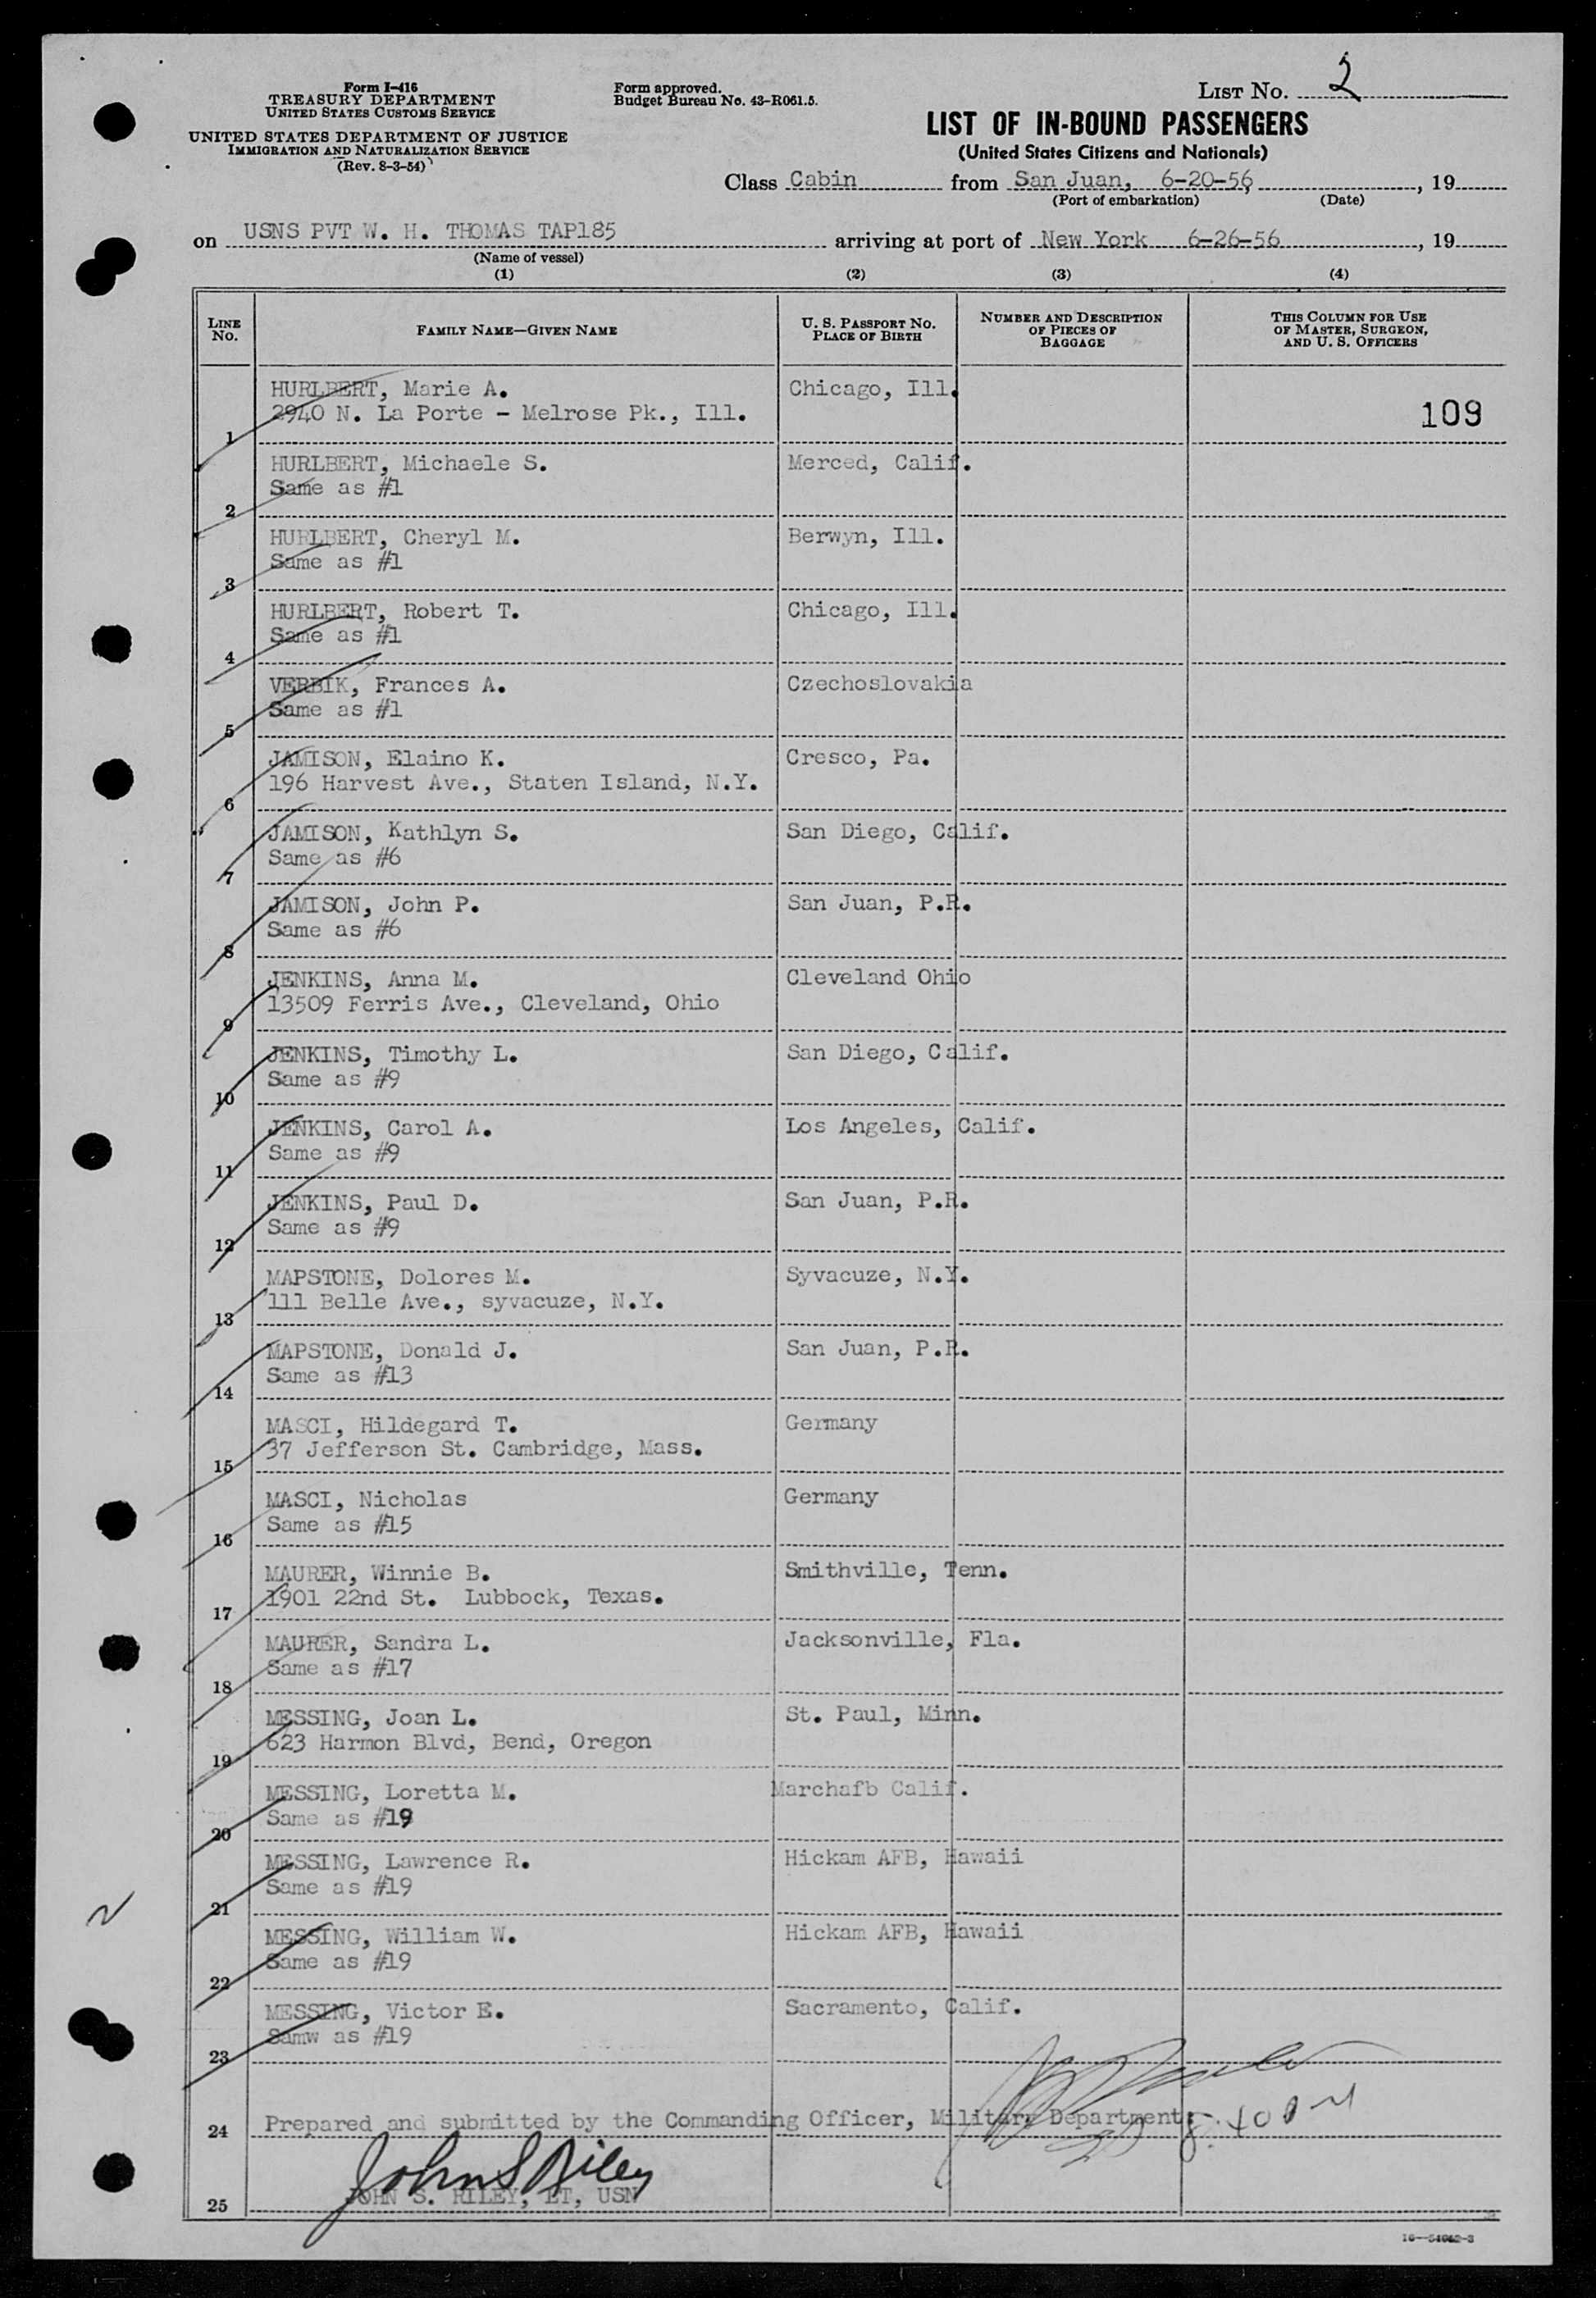 Form I-416
TREASURY DEPARTMENT
UNITED STATES CUSTOMS SERVICE
UNITED STATES DEPARTMENT OF JUSTICE
IMMIGRATION AND NATURALIZATION SERVICE
(Rev. 8-3-54)
Form approved.
Budget Bureau No. 43-R061.5.
LIST No. 2
LIST OF IN-BOUND PASSENGERS
(United States Citizens and Nationals)
Class Cabin from San Juan, 6-20-56, 19
(Port of embarkation) (Date)
on USNS PVT W. H. THOMAS TAP185 arriving at port of New York 6-26-56, 19
(Name of vessel)
(1) (2) (3) (4)
LINE No. FAMILY NAME—GIVEN NAME U. S. PASSPORT No. PLACE OF BIRTH NUMBER AND DESCRIPTION OF PIECES OF BAGGAGE THIS COLUMN FOR USE OF MASTER, SURGEON, AND U. S. OFFICERS
HURLBERT, Marie A. Chicago, Ill.
1 2940 N. La Porte - Melrose Pk., Ill. 109
HURLBERT, Michaele S. Merced, Calif.
2 Same as #1
HURLBERT, Cheryl M. Berwyn, Ill.
3 Same as #1
HURLBERT, Robert T. Chicago, Ill.
4 Same as #1
VERBIK, Frances A. Czechoslovakia
5 Same as #1
JAMISON, Elaino K. Cresco, Pa.
6 196 Harvest Ave., Staten Island, N.Y.
JAMISON, Kathlyn S. San Diego, Calif.
7 Same as #6
JAMISON, John P. San Juan, P.R.
8 Same as #6
JENKINS, Anna M. Cleveland Ohio
9 13509 Ferris Ave., Cleveland, Ohio
JENKINS, Timothy L. San Diego, Calif.
10 Same as #9
JENKINS, Carol A. Los Angeles, Calif.
11 Same as #9
JENKINS, Paul D. San Juan, P.R.
12 Same as #9
MAPSTONE, Dolores M. Syvacuze, N.Y.
13 111 Belle Ave., syvacuze, N.Y.
MAPSTONE, Donald J. San Juan, P.R.
14 Same as #13
MASCI, Hildegard T. Germany
15 37 Jefferson St. Cambridge, Mass.
MASCI, Nicholas Germany
16 Same as #15
MAURER, Winnie B. Smithville, Tenn.
17 1901 22nd St. Lubbock, Texas.
MAURER, Sandra L. Jacksonville, Fla.
18 Same as #17
MESSING, Joan L. St. Paul, Minn.
19 623 Harmon Blvd, Bend, Oregon
MESSING, Loretta M. Marchafb Calif.
20 Same as #19
MESSING, Lawrence R. Hickam AFB, Hawaii
21 Same as #19
MESSING, William W. Hickam AFB, Hawaii
22 Same as #19
MESSING, Victor E. Sacramento, Calif.
23 Samw as #19
24 Prepared and submitted by the Commanding Officer, Military Department:
John S Riley
25 JOHN S. RILEY, LT, USN